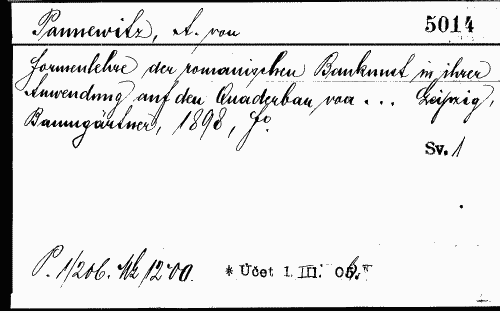 Pannewitz, A. von
5014
Formenlehre der romanischen Baukunst in ihrer
Anwendung auf den Quaderbau von ... Leipzig,
Baumgärtner, 1898, f°.
Sv. 1
P. 1/206. Mk 12·00. * Účet 1. III. 06.